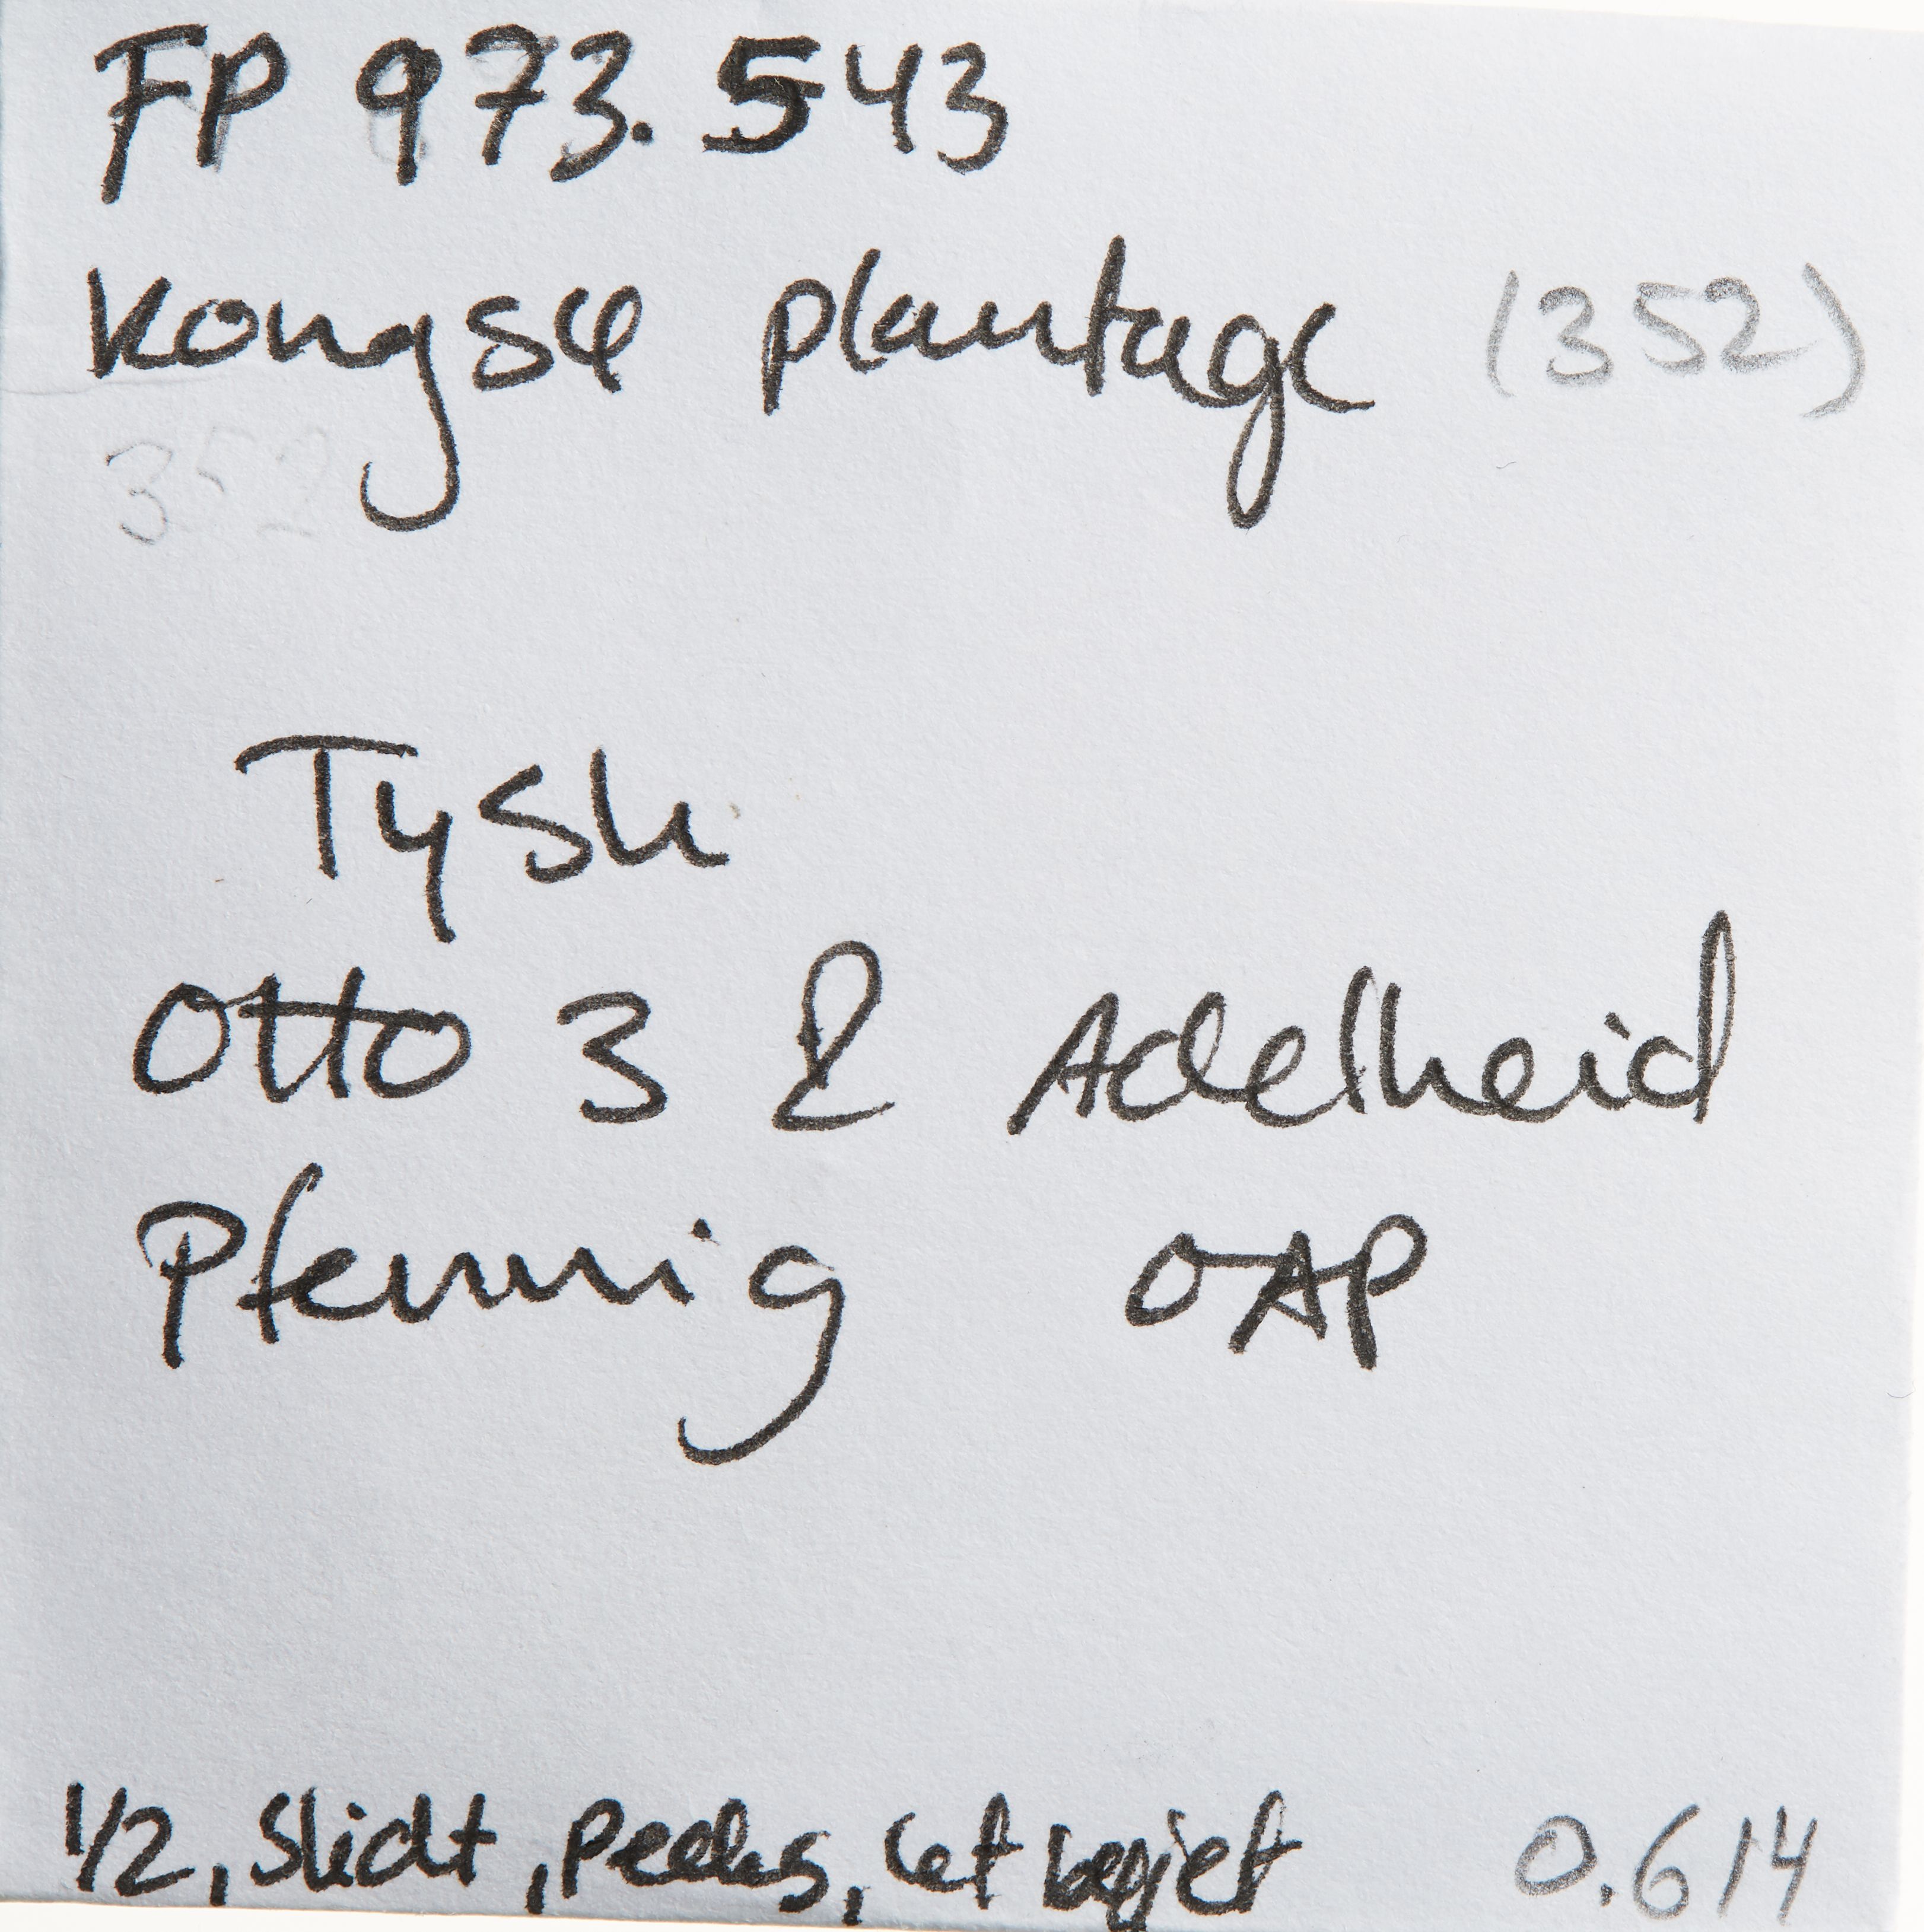 FP 973.543
Kongsø plantage (352)
352
Tysk
Otto 3 & Adelheid
Pfennig OAP
1/2, Slidt, Pecks, let bøjet 0.614